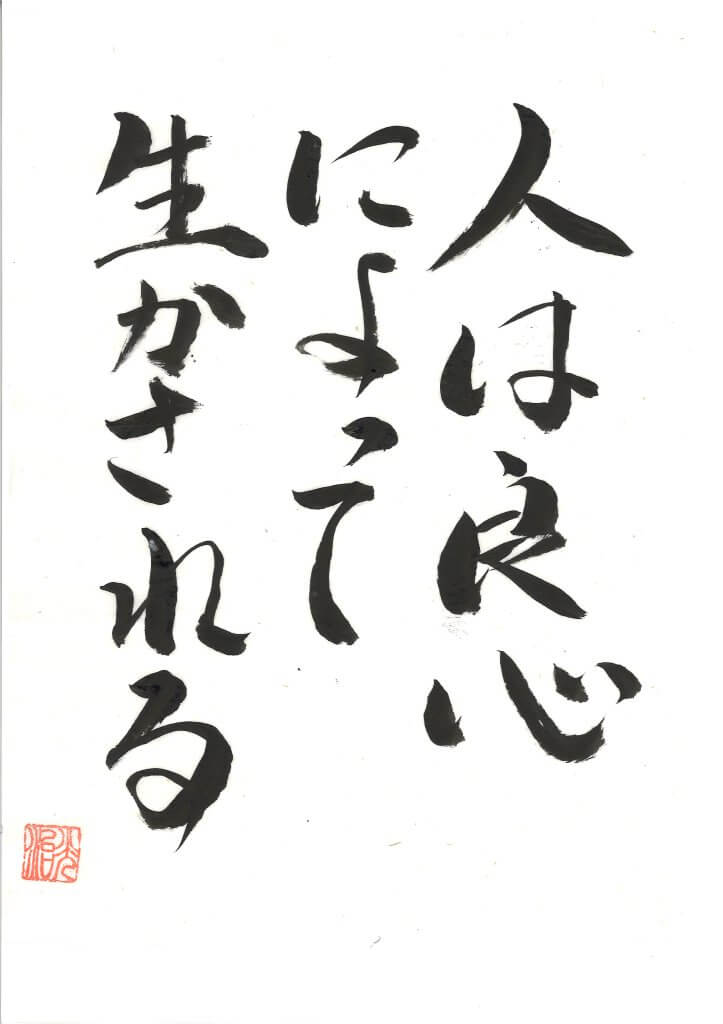 人は良心
によって
生かされる